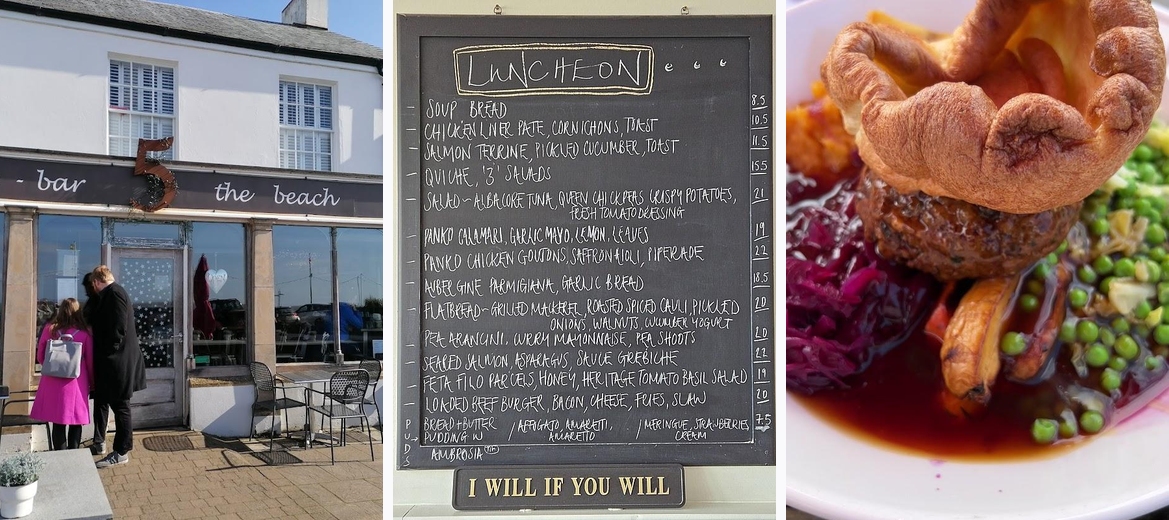 - bar 5 the beach
LUNCHEON
- SOUP BREAD 8.5
- CHICKEN LIVER PATE, CORNICHONS, TOAST 10.5
- SALMON TERRINE, PICKLED CUCUMBER, TOAST 11.5
- QUICHE, '3' SALADS 15.5
- SALAD ~ ALBACORE TUNA, QUEEN CHICKPEAS CRISPY POTATOES, 21
FRESH TOMATO DRESSING
- PANKO CALAMARI, GARLIC MAYO, LEMON, LEAVES 19
- PANKO CHICKEN GOUJONS, SAFFRON AIOLI, PIPERADE 22
- AUBERGINE PARMIGIANA, GARLIC BREAD 18.5
- FLATBREAD ~ GRILLED MACKEREL, ROASTED SPICED CAULI, PICKLED 20
ONIONS, WALNUTS, CUCUMBER YOGURT
- PEA ARANCINI, CURRY MAYONNAISE, PEA SHOOTS 20
- SEARED SALMON, ASPARAGUS, SAUCE GREBICHE 22
- FETA FILO PARCELS, HONEY, HERITAGE TOMATO BASIL SALAD 19
- LOADED BEEF BURGER, BACON, CHEESE, FRIES, SLAW 20
PUDS BREAD + BUTTER / AFFOGATO, AMARETTI, / MERINGUE, STRAWBERRIES 7.5
PUDDING W AMARETTO CREAM
AMBROSIA
I WILL IF YOU WILL